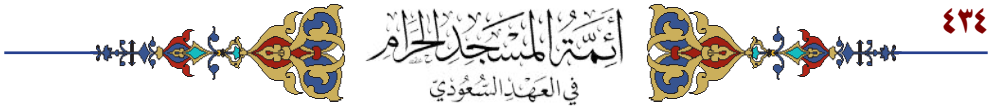 ٤٣٤
أَئِمَّةُ المَسْجِدِ الحَرَامِ
في العَهْدِ السُّعُودِيِّ